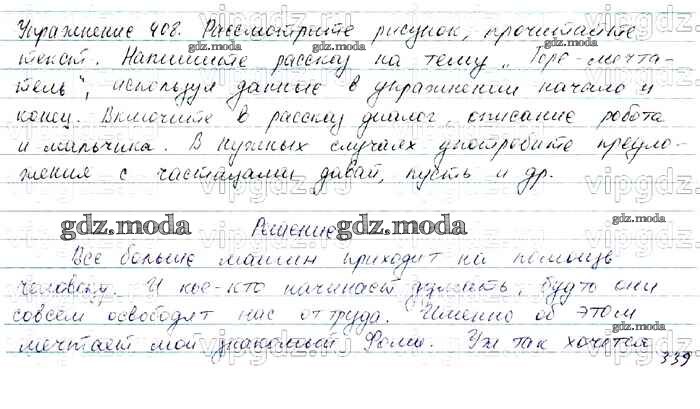 Упражнение 408. Рассмотрите рисунок, прочитайте
текст. Напишите рассказ на тему „Горе-мечта-
тель", используя данные в упражнении начало и
конец. Включите в рассказ диалог, описание робота
и мальчика. В нужных случаях употребите предло-
жения с частицами давай, пусть и др.
Решение
Все больше машин приходит на помощь
человеку. И кое-кто начинает думать, будто они
совсем освободят нас от труда. Именно об этом
мечтает мой знакомый Фома. Уж так хочется
339
gdz.moda
vipgdz.ru